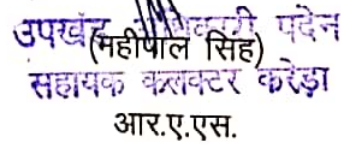 उपखंड अधिकारी पदेन
(महीपाल सिंह)
सहायक कलक्टर करेड़ा
आर.ए.एस.